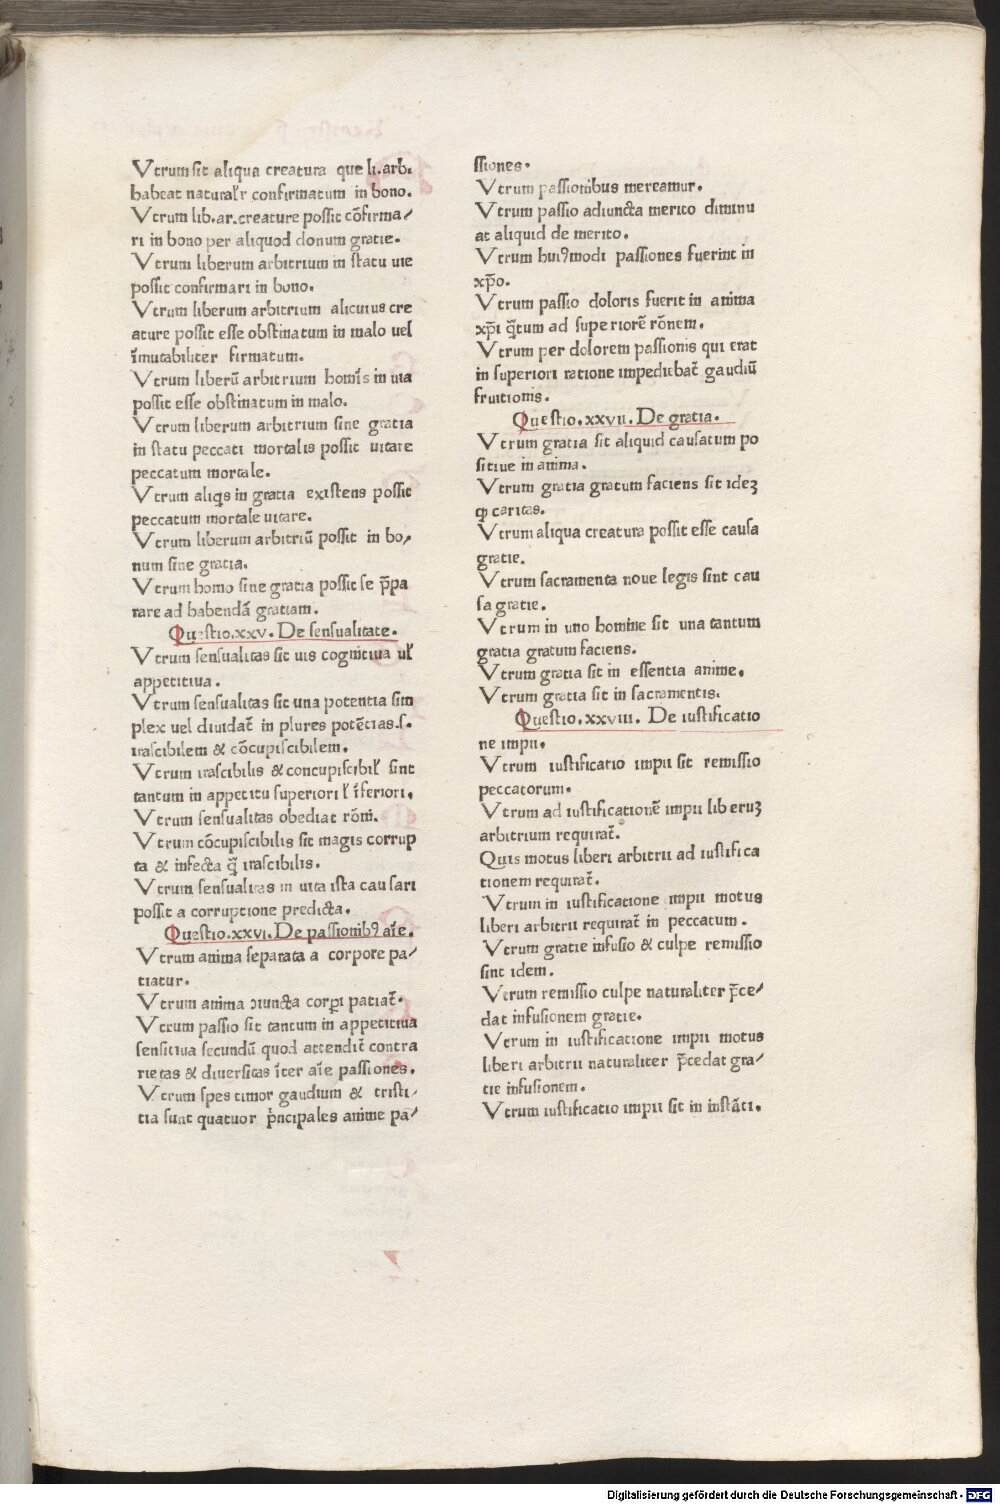 Vtrum sit aliqua creatura que li.arb.
habeat naturalr̄ confirmatum in bono.
Vtrum lib.ar.creature possit cōfirma/
ri in bono per aliquod donum gratie.
Vtrum liberum arbitrium in statu uie
possit confirmari in bono.
Vtrum liberum arbitrium alicuius cre
ature possit esse obstinatum in malo uel
īmutabiliter firmatum.
Vtrum liberū arbitrium homīs in uia
possit esse obstinatum in malo.
Vtrum liberum arbitrium sine gratia
in statu peccati mortalis possit uitare
peccatum mortale.
Vtrum aliqs in gratia existens possit
peccatum mortale uitare.
Vtrum liberum arbitriū possit in bo/
num sine gratia.
Vtrum homo sine gratia possit se p̄pa
rare ad habendā gratiam.
Questio.xxv. De sensualitate.
Vtrum sensualitas sit uis cognitiua ul̄
appetitiua.
Vtrum sensualitas sit una potentia sim
plex uel diuidat̄ in plures potētias.s.
irascibilem & cōcupiscibilem.
Vtrum irascibilis & concupiscibil̄ sint
tantum in appetitu superiori l̄ īferiori.
Vtrum sensualitas obediat rōni.
Vtrum cōcupiscibilis sit magis corrup
ta & infecta q̄ irascibilis.
Vtrum sensualitas in uita ista causari
possit a corruptione predicta.
Questio.xxvi. De passionibꝰ aīe.
Vtrum anima separata a corpore pa/
tiatur.
Vtrum anima ɔiuncta corpꝛi patiat̄.
Vtrum passio sit tantum in appetitiua
sensitiua secundū quod attendit̄ contra
rietas & diuersitas īter aīe passiones.
Vtrum spes timor gaudium & tristi/
tia sunt quatuor p̄ncipales anime pa/
ssiones.
Vtrum passionibus mereamur.
Vtrum passio adiuncta merito diminu
at aliquid de merito.
Vtrum huiꝰmodi passiones fuerint in
xp̄o.
Vtrum passio doloris fuerit in anima
xp̄i q̄tum ad superiorē rōnem.
Vtrum per dolorem passionis qui erat
in superiori ratione impediebat̄ gaudiū
fruitionis.
Questio.xxvii. De gratia.
Vtrum gratia sit aliquid causatum po
sitiue in anima.
Vtrum gratia gratum faciens sit ideꝫ
ꝙ caritas.
Vtrum aliqua creatura possit esse causa
gratie.
Vtrum sacramenta noue legis sint cau
sa gratie.
Vtrum in uno homine sit una tantum
gratia gratum faciens.
Vtrum gratia sit in essentia anime.
Vtrum gratia sit in sacramentis.
Questio.xxviii. De iustificatio
ne impii.
Vtrum iustificatio impii sit remissio
peccatorum.
Vtrum ad iustificationē impii liberuꝫ
arbitrium requirat̄.
Quis motus liberi arbitrii ad iustifica
tionem requirat̄.
Vtrum in iustificatione impii motus
liberi arbitrii requirat̄ in peccatum.
Vtrum gratie infusio & culpe remissio
sint idem.
Vtrum remissio culpe naturaliter p̄ce/
dat infusionem gratie.
Vtrum in iustificatione impii motus
liberi arbitrii naturaliter p̄cedat gra/
tie infusionem.
Vtrum iustificatio impii sit in instāti.
Digitalisierung gefördert durch die Deutsche Forschungsgemeinschaft - DFG